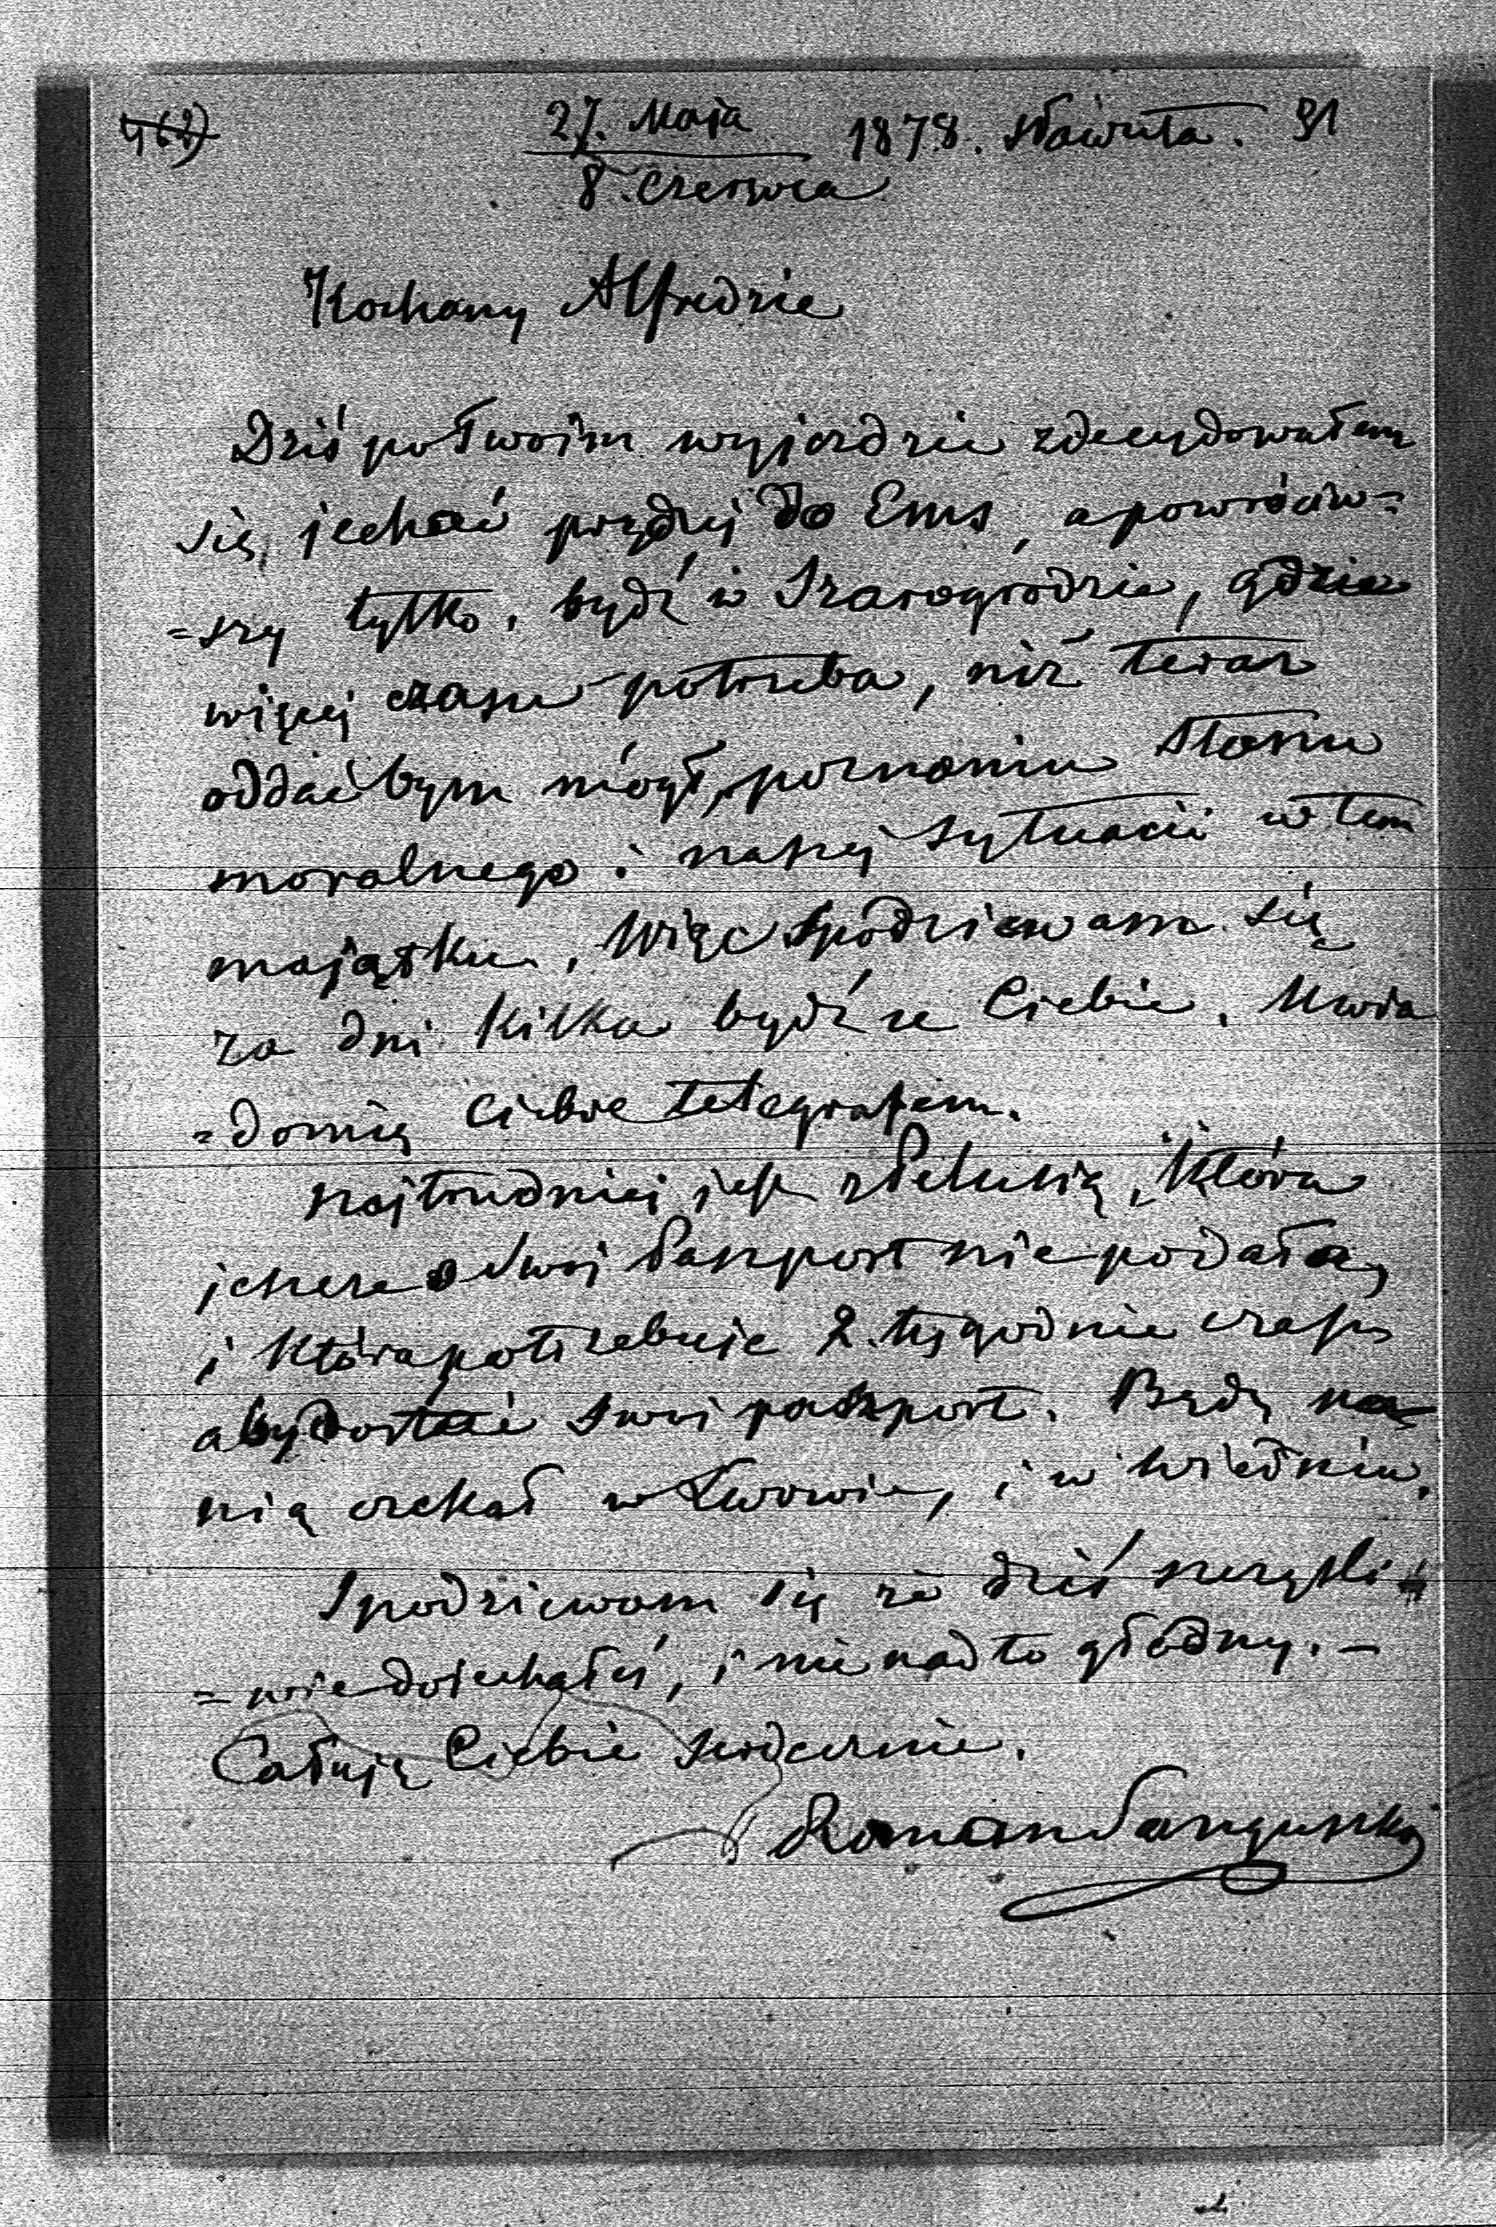 27. Maja 1878. Sławuta. 31
8. Czerwca
Kochany Alfredzie
Dziś po Twoim wyjezdzie zdecydowałem
się jechać prędzej do Ems, a powróciw=
=szy tylko, bydź w Szarogrodzie, gdzie
więcej czasu potrzeba, niż teraz
oddać bym mógł, poznaniu stanu
moralnego i naszej sytuacii w tem
majątku. Więc spodziewam się
za dni kilka bydź u Ciebie. Uwia
=domię Ciebie telegrafem.
Najtrudniej jest z Pelusią, która
jeszcze o swój Paszport nie podała,
i która potrzebuje 2. tygodnie czasu
aby dostać swój paszport. Będę na
nią czekał w Lwowie, i w Wiedniu.
Spodziewam się że dziś szczęśli=
=wie dojechałeś, i nie nad to głodny. –
Całuję Ciebie serdecznie.
Roman Sanguszko